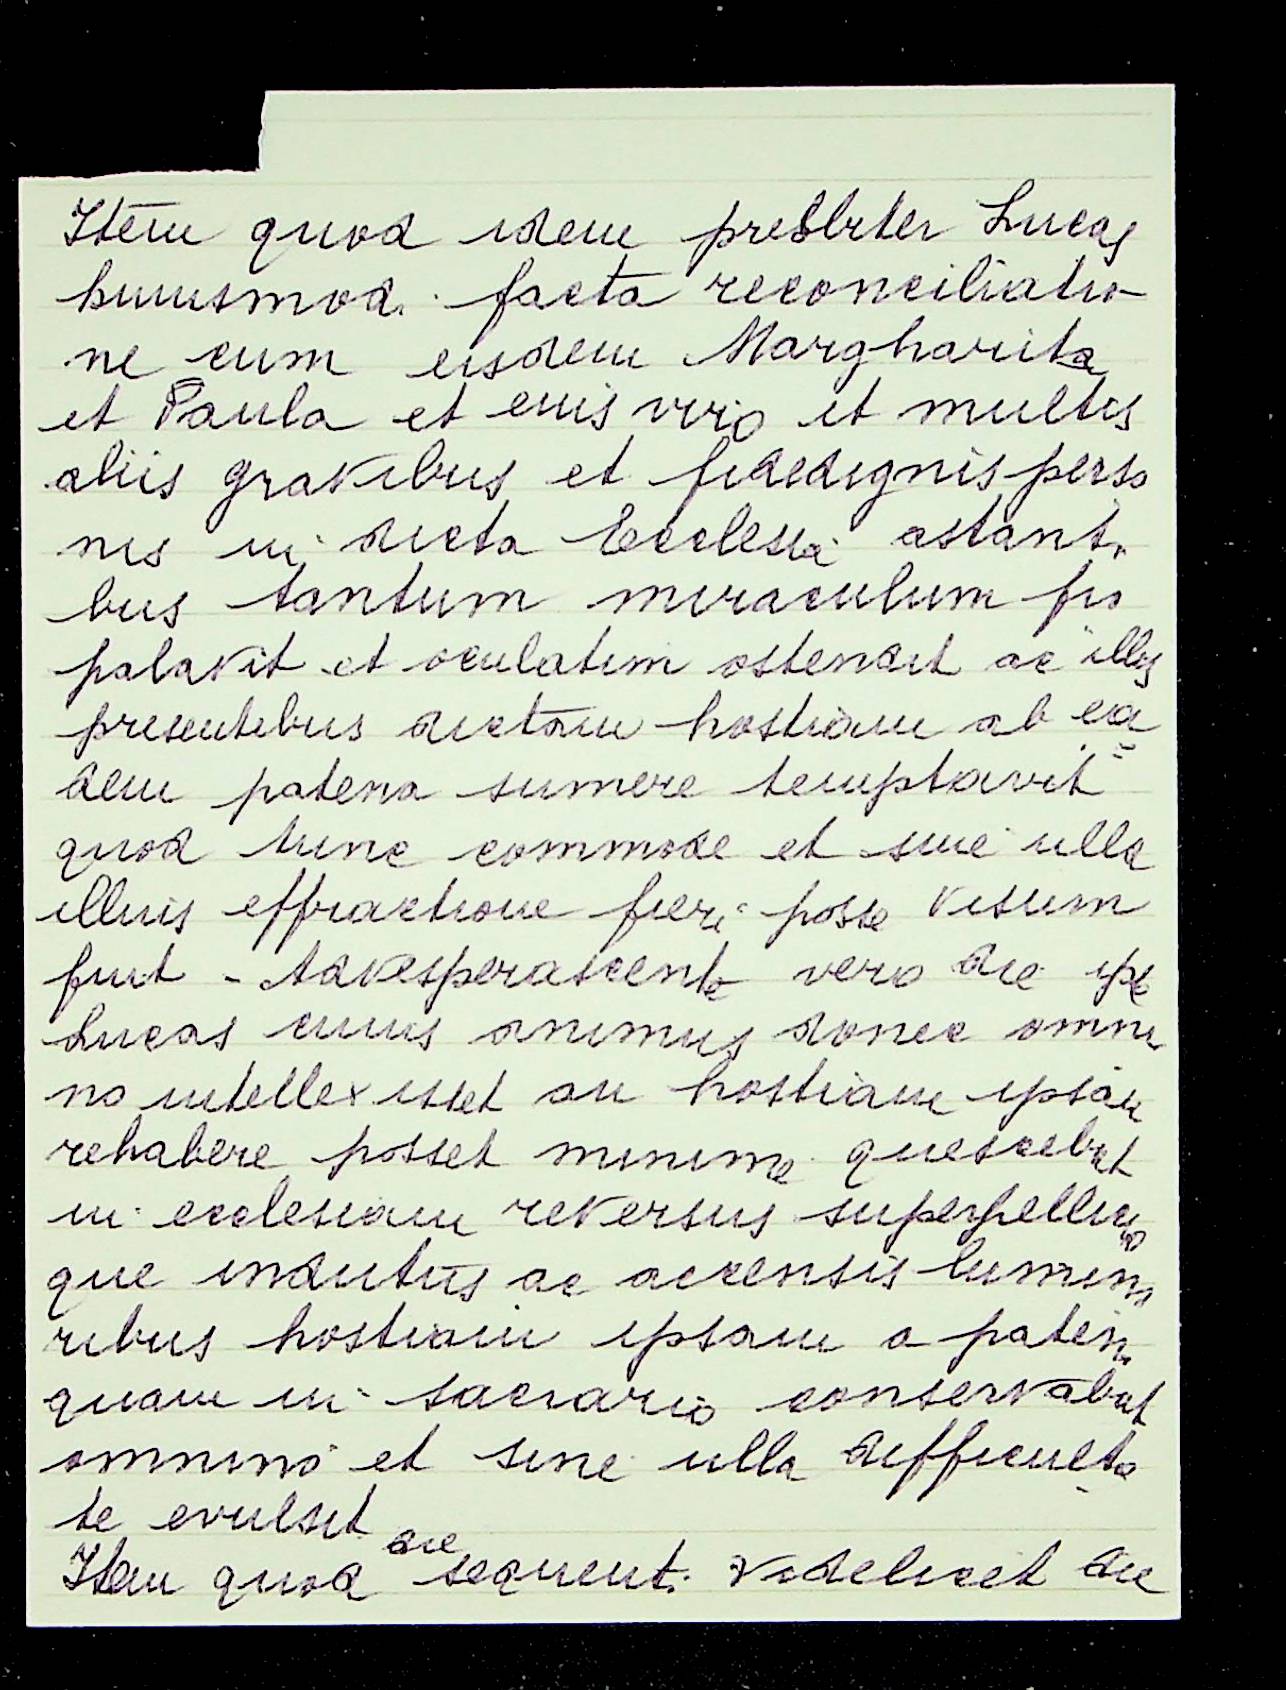 Item quod idem presbiter Lucas
huiusmodi facta reconciliatio-
ne cum eisdem Margharita
et Paula et eius viro et multis
aliis gravibus et fidedignis perso
nis in dicta Ecclesia astanti
bus tantum miraculum pro
palavit et oculatim ostendit ac illis
presentibus dictam hostiam ab ea
dem patena sumere temptavit
quod tunc commode et sine ulla
illius effractione fieri posse visum
fuit - Advesperascente vero die ipse
Lucas cuius animus donec omni
no intellexisset an hostiam ipsam
rehabere posset minime quiescebat
in ecclesiam reversus superpellicio
que indutus ac accensis lumina
ribus hostiam ipsam a patena
quam in sacrario conservabat
omnino et sine ulla difficulta
te evulsit
Item quod die sequenti videlicet die